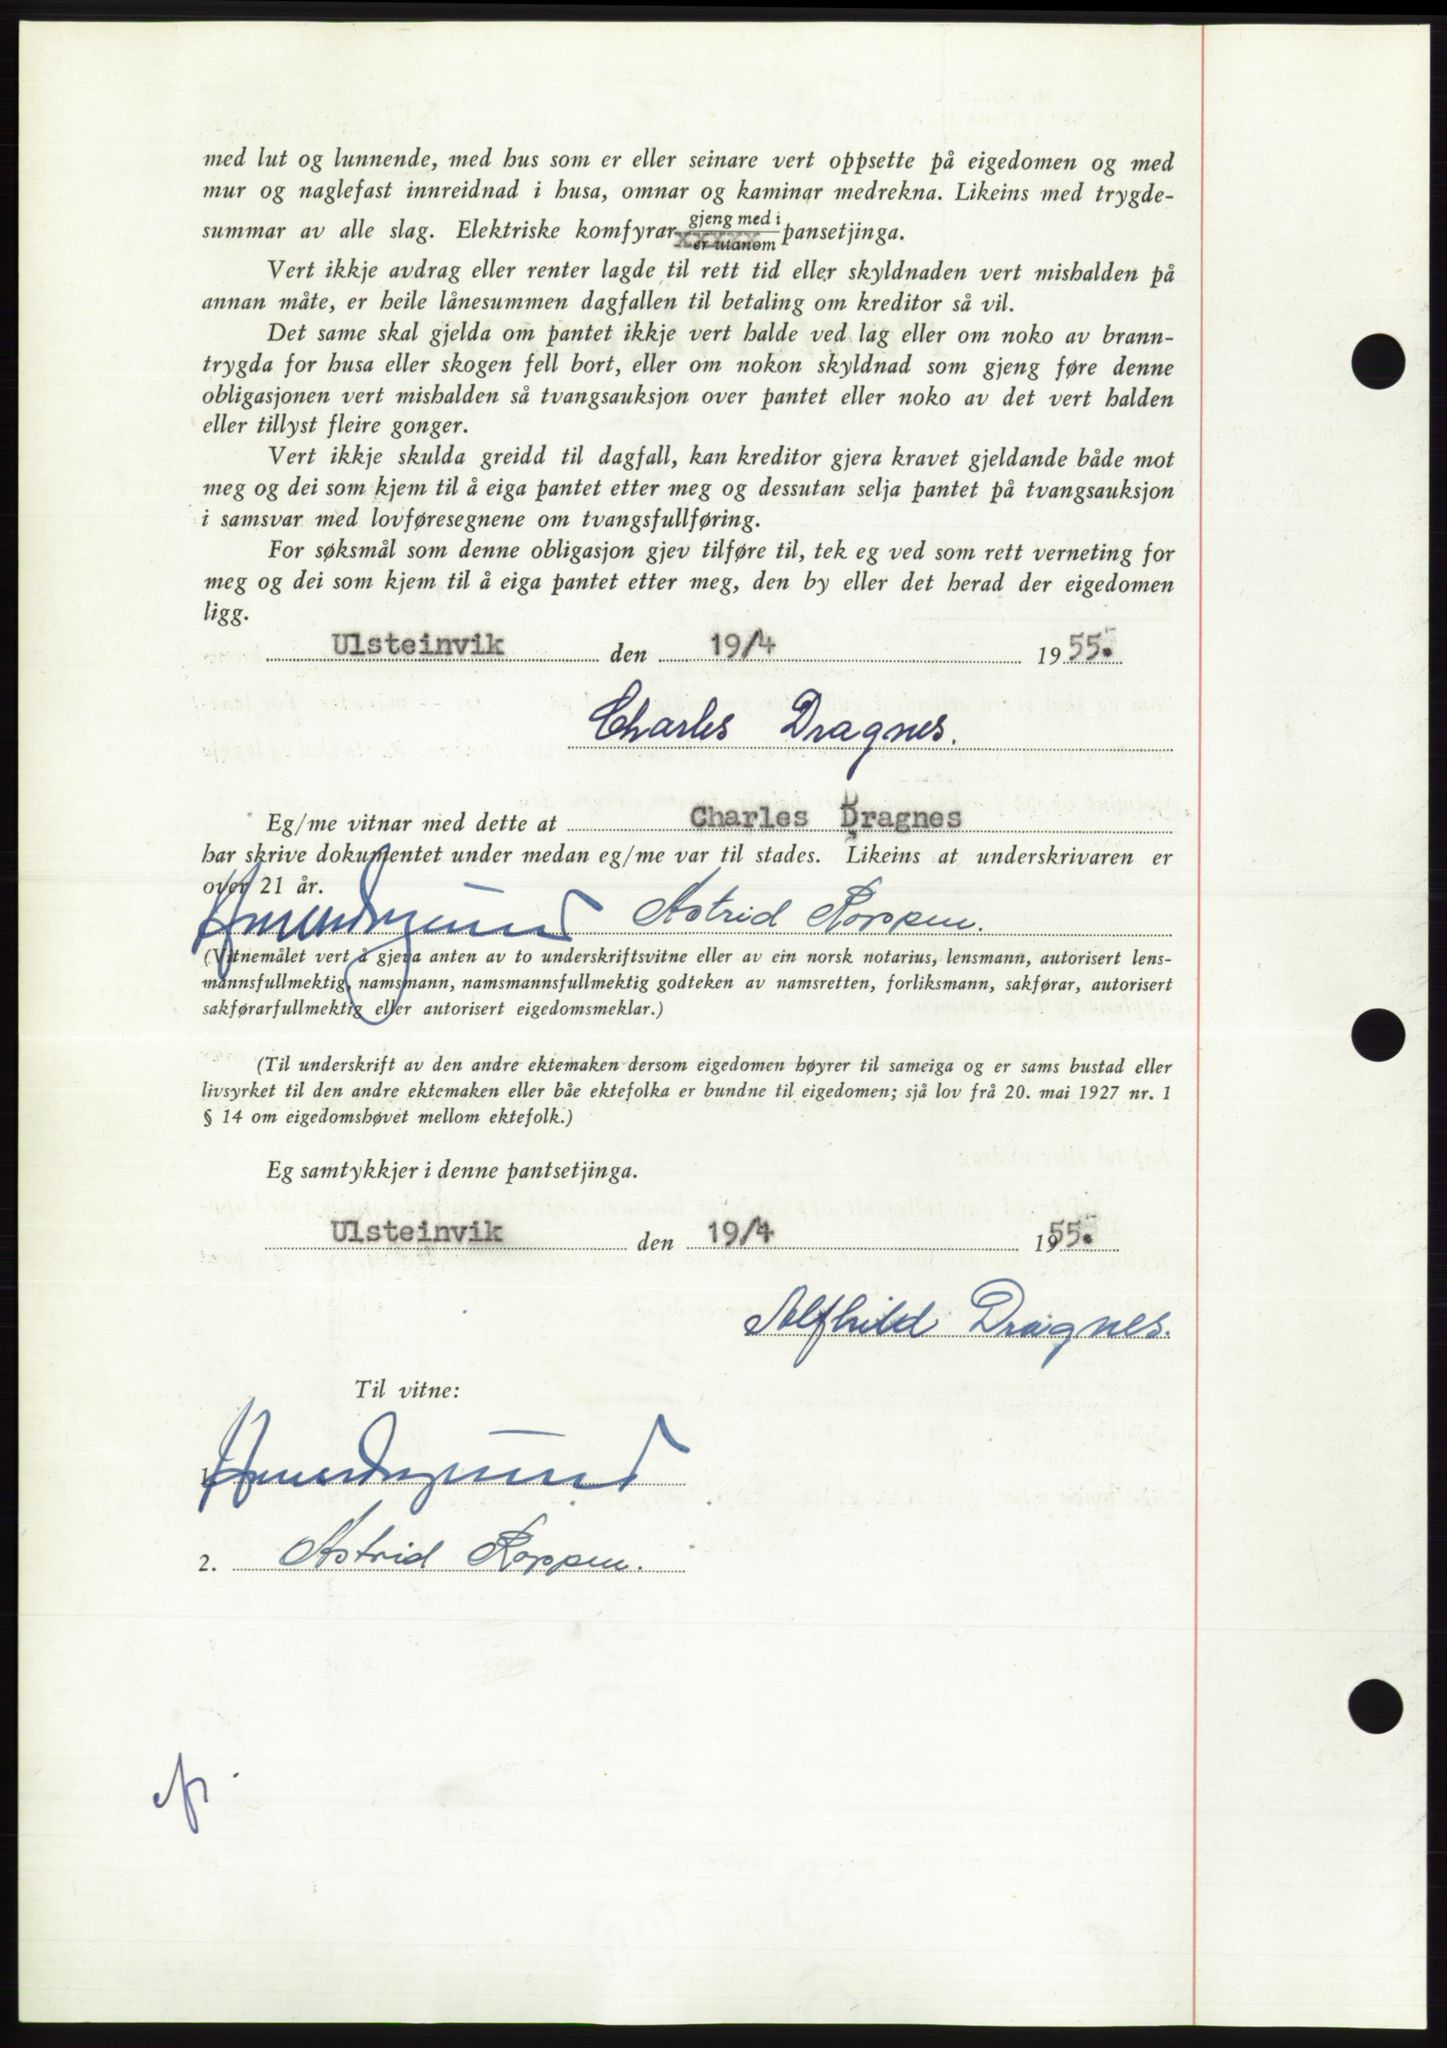 med lut og lunnende, med hus som er eller seinare vert oppsette på eigedomen og med
mur og naglefast innreidnad i husa, omnar og kaminar medrekna. Likeins med trygde-
summar av alle slag. Elektriske komfyrar gjeng med i / er utanom pansetjinga.
Vert ikkje avdrag eller renter lagde til rett tid eller skyldnaden vert mishalden på
annan måte, er heile lånesummen dagfallen til betaling om kreditor så vil.
Det same skal gjelda om pantet ikkje vert halde ved lag eller om noko av brann-
trygda for husa eller skogen fell bort, eller om nokon skyldnad som gjeng føre denne
obligasjonen vert mishalden så tvangsauksjon over pantet eller noko av det vert halden
eller tillyst fleire gonger.
Vert ikkje skulda greidd til dagfall, kan kreditor gjera kravet gjeldande både mot
meg og dei som kjem til å eiga pantet etter meg og dessutan selja pantet på tvangsauksjon
i samsvar med lovføresegnene om tvangsfullføring.
For søksmål som denne obligasjon gjev tilføre til, tek eg ved som rett verneting for
meg og dei som kjem til å eiga pantet etter meg, den by eller det herad der eigedomen
ligg.
Ulsteinvik den 19/4 1955.
Charles Dragnes.
Eg/me vitnar med dette at Charles Dragnes
har skrive dokumentet under medan eg/me var til stades. Likeins at underskrivaren er
over 21 år.
Astrid Roppen.
(Vitnemålet vert å gjeva anten av to underskriftsvitne eller av ein norsk notarius, lensmann, autorisert lens-
mannsfullmektig, namsmann, namsmannsfullmektig godteken av namsretten, forliksmann, sakførar, autorisert
sakførarfullmektig eller autorisert eigedomsmeklar.)
(Til underskrift av den andre ektemaken dersom eigedomen høyrer til sameiga og er sams bustad eller
livsyrket til den andre ektemaken eller båe ektefolka er bundne til eigedomen; sjå lov frå 20. mai 1927 nr. 1
§ 14 om eigedomshøvet mellom ektefolk.)
Eg samtykkjer i denne pantsetjinga.
Ulsteinvik den 19/4 1955.
Alfhild Dragnes.
Til vitne:
1.
2. Astrid Roppen.